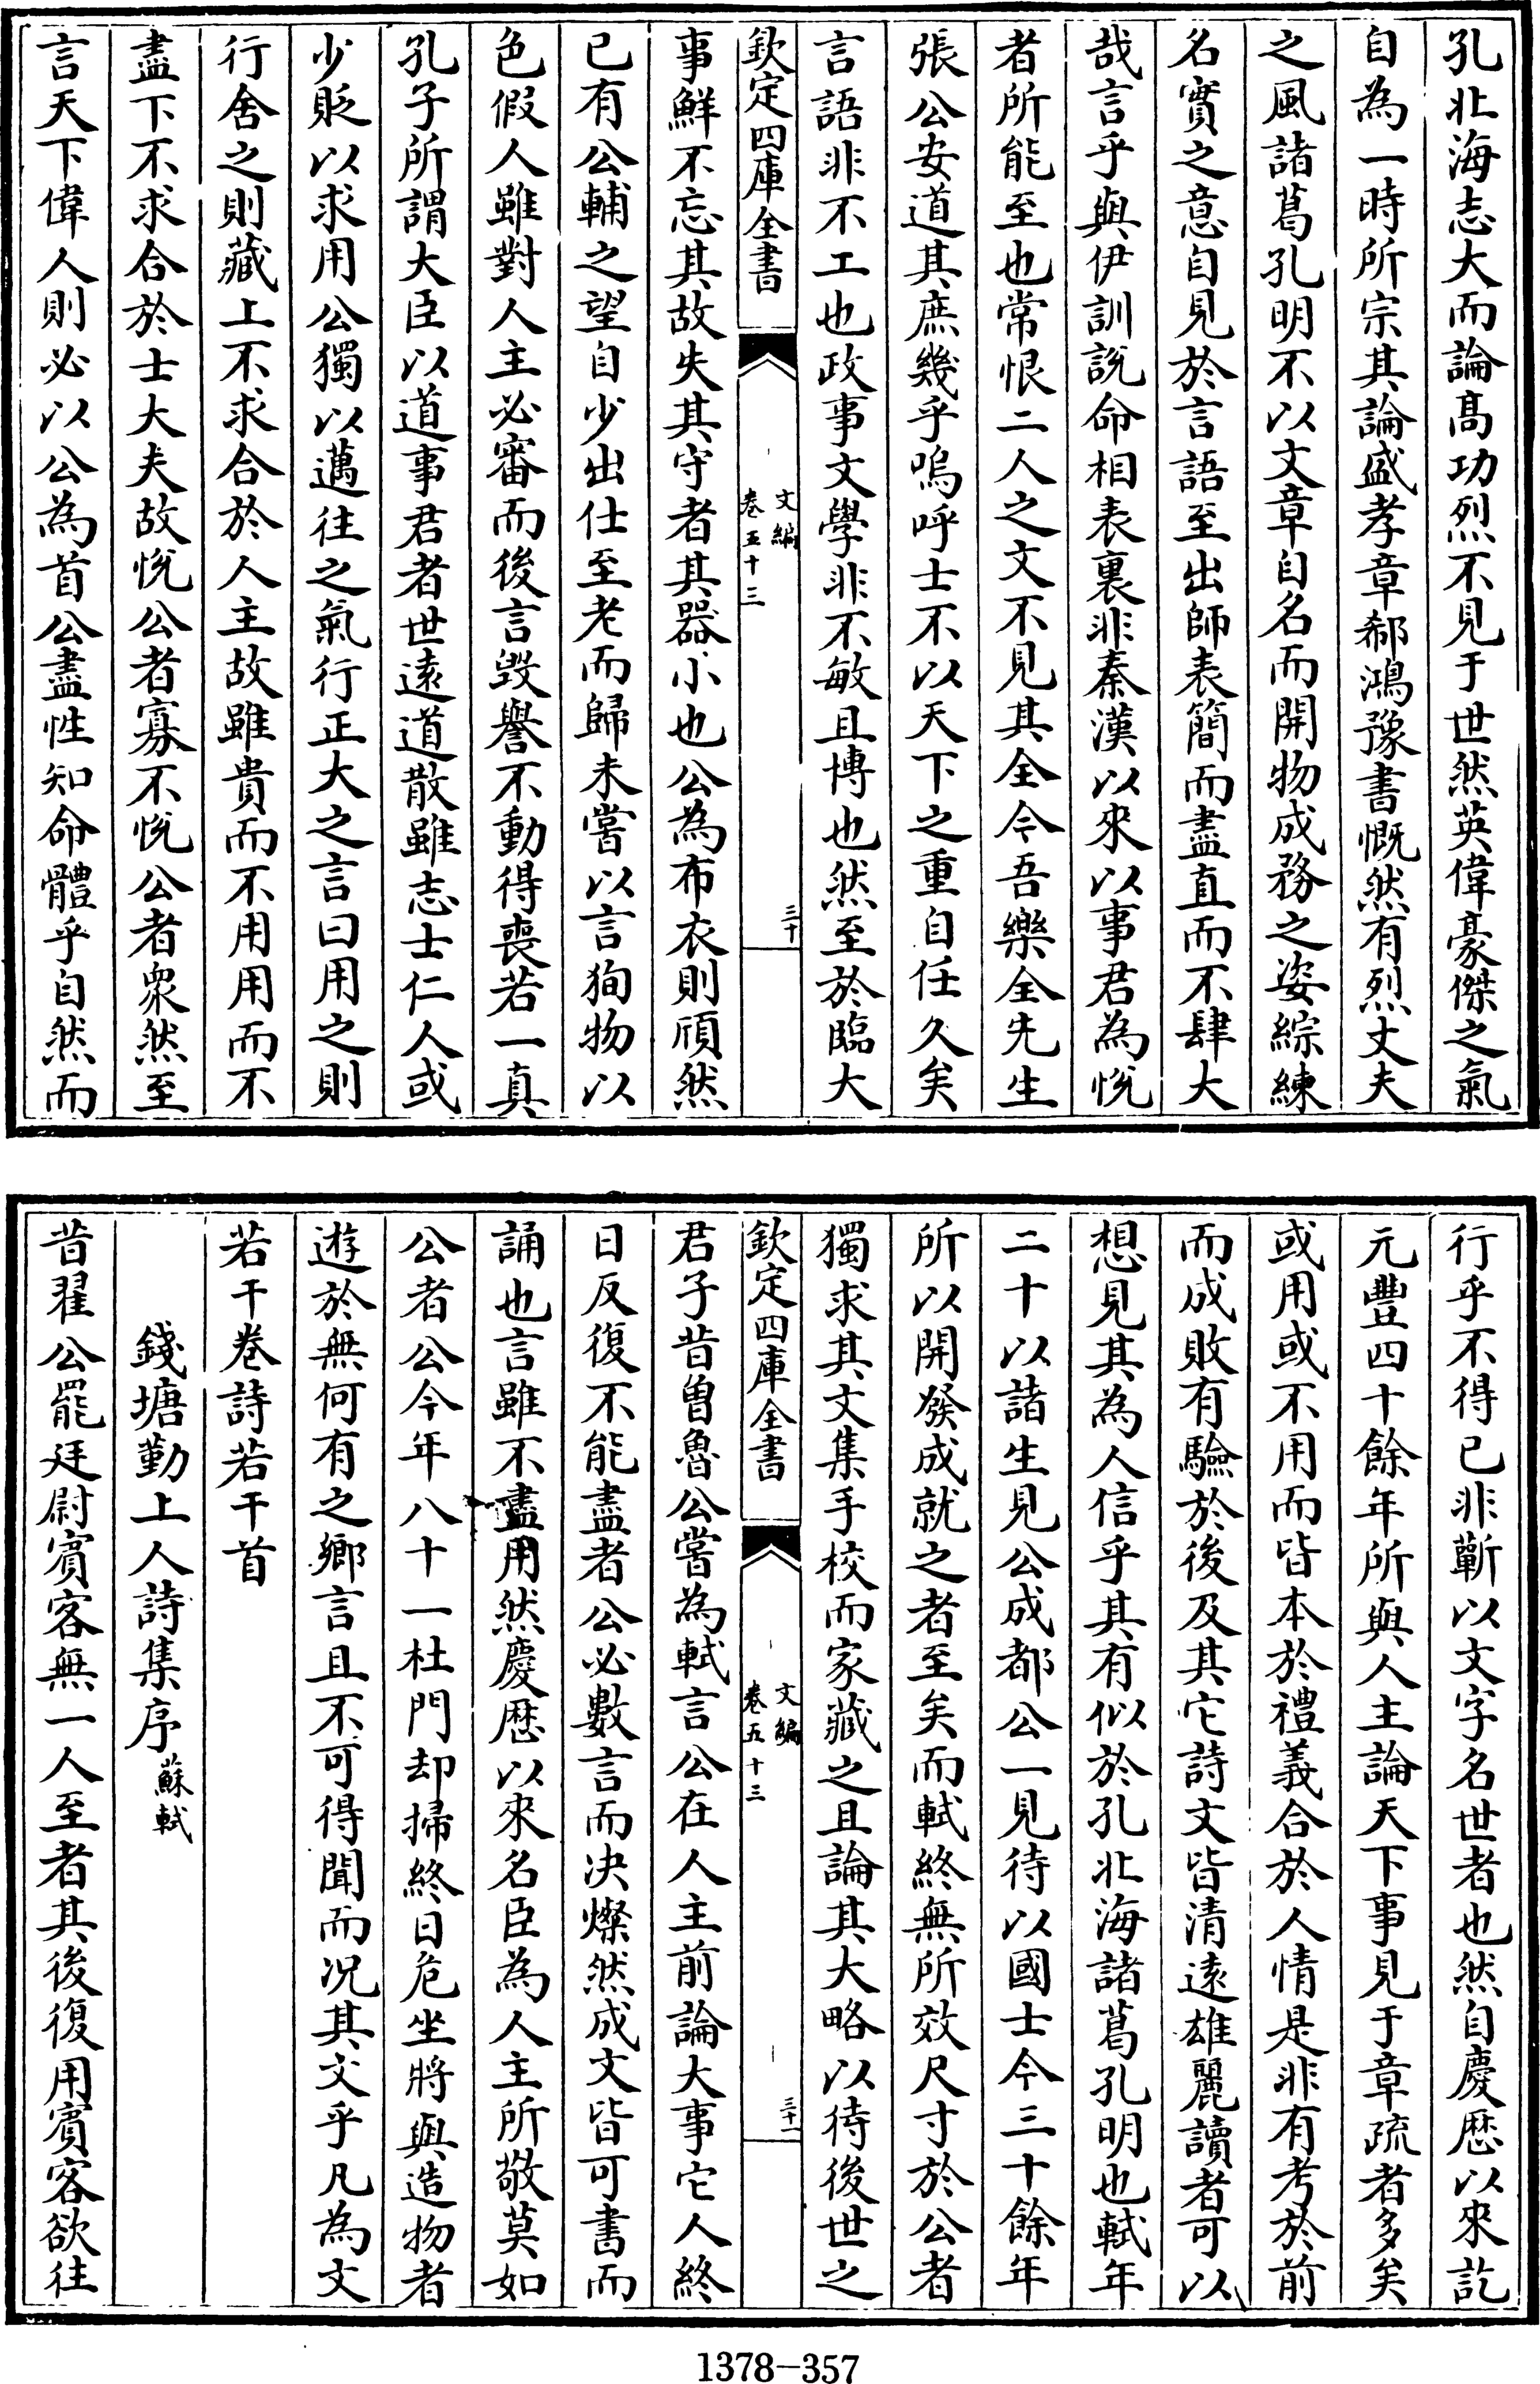 孔北海志大而論高功烈不見于世然英偉豪傑之氣
自為一時所宗其論盛孝章郗鴻豫書慨然有烈丈夫
之風諸葛孔明不以文章自名而開物成務之姿綜練
名實之意自見於言語至出師表簡而盡直而不肆大
哉言乎與伊訓說命相表裏非秦漢以來以事君為悅
者所能至也常恨二人之文不見其全今吾樂全先生
張公安道其庶幾乎嗚呼士不以天下之重自任久矣
言語非不工也政事文學非不敏且博也然至於臨大
欽定四庫全書
文編
卷五十三
三十
事鮮不忘其故失其守者其器小也公為布衣則頎然
已有公輔之望自少出仕至老而歸未嘗以言徇物以
色假人雖對人主必審而後言毀譽不動得喪若一真
孔子所謂大臣以道事君者世遠道散雖志士仁人或
少貶以求用公獨以邁往之氣行正大之言曰用之則
行舍之則藏上不求合於人主故雖貴而不用用而不
盡下不求合於士大夫故悅公者寡不悅公者衆然至
言天下偉人則必以公為首公盡性知命體乎自然而
行乎不得已非蘄以文字名世者也然自慶厯以來訖
元豐四十餘年所與人主論天下事見于章疏者多矣
或用或不用而皆本於禮義合於人情是非有考於前
而成敗有驗於後及其它詩文皆清遠雄麗讀者可以
想見其為人信乎其有似於孔北海諸葛孔明也軾年
二十以諸生見公成都公一見待以國士今三十餘年
所以開發成就之者至矣而軾終無所效尺寸於公者
獨求其文集手校而家藏之且論其大略以待後世之
欽定四庫全書
文編
卷五十三
三十一
君子昔曾魯公嘗為軾言公在人主前論大事它人終
日反復不能盡者公必數言而决燦然成文皆可書而
誦也言雖不盡用然慶厯以來名臣為人主所敬莫如
公者公今年八十一杜門却掃終日危坐將與造物者
遊於無何有之鄉言且不可得聞而况其文乎凡為文
若干卷詩若干首
錢塘勤上人詩集序蘇軾
昔翟公罷廷尉賓客無一人至者其後復用賓客欲往
1378-357